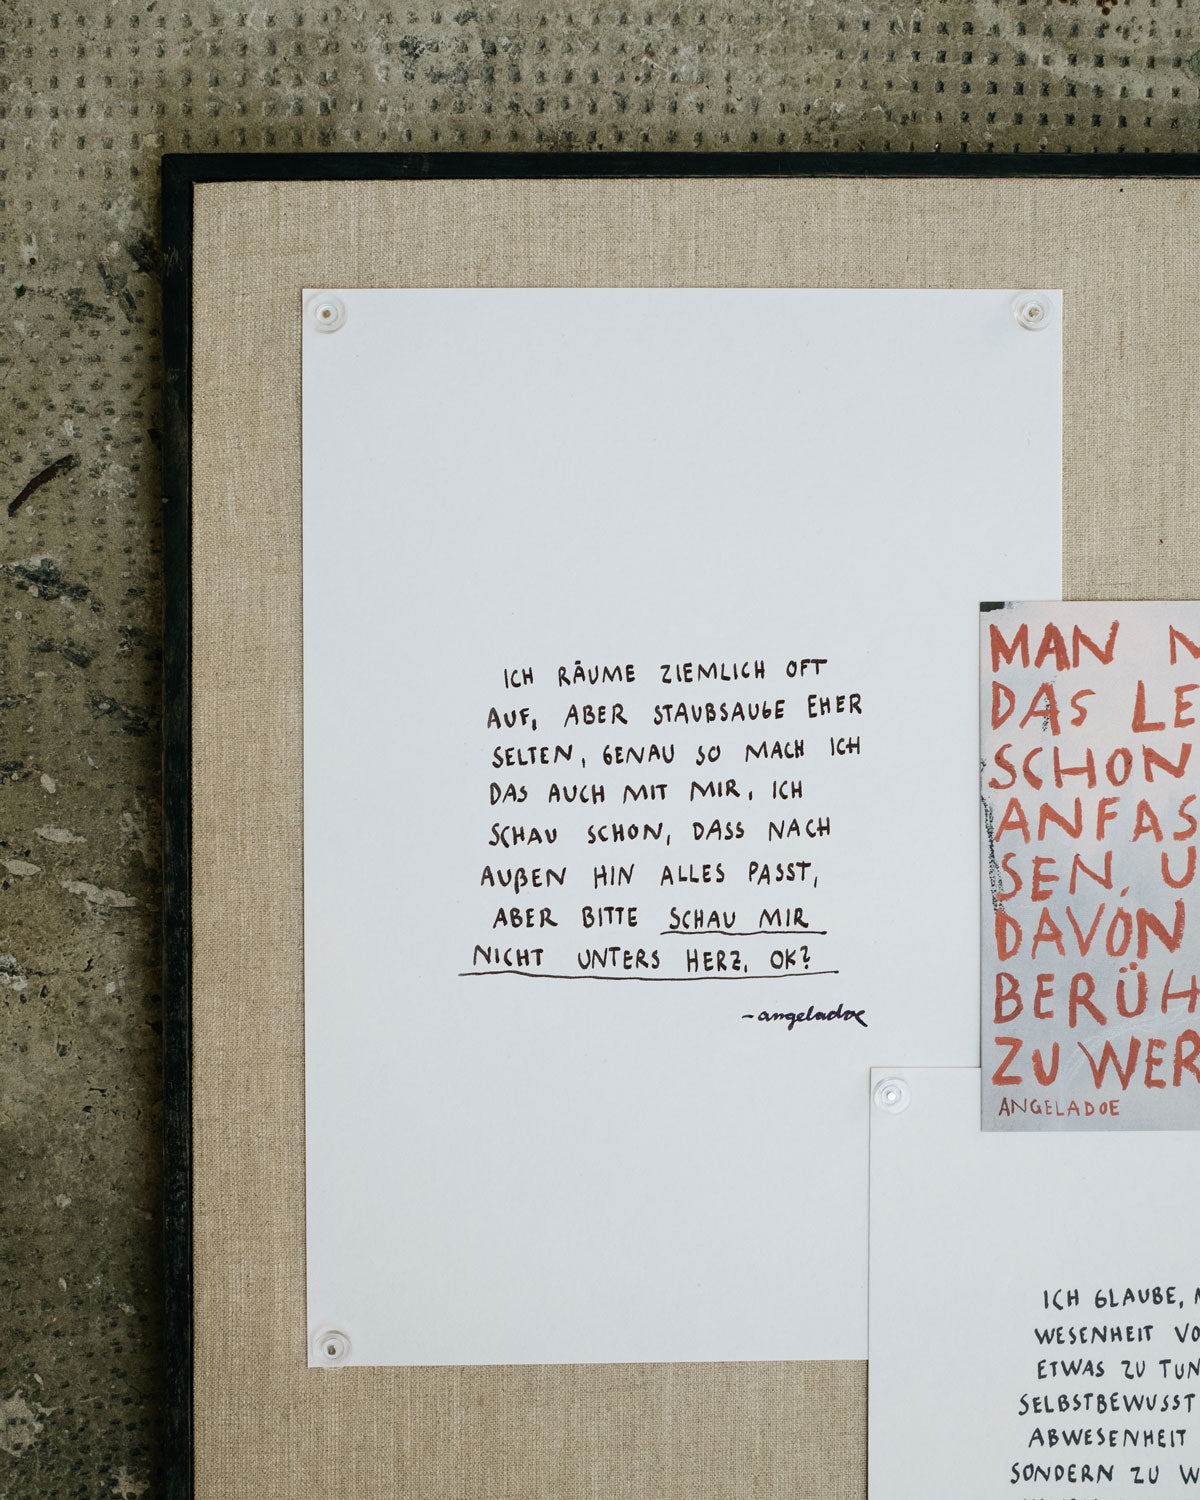 ICH RÄUME ZIEMLICH OFT
AUF, ABER STAUBSAUGE EHER
SELTEN, GENAU SO MACH ICH
DAS AUCH MIT MIR, ICH
SCHAU SCHON, DASS NACH
AUßEN HIN ALLES PASST,
ABER BITTE SCHAU MIR
NICHT UNTERS HERZ, OK?
- angeladoe
MAN
DAS LE
SCHON
ANFAS
SEN, U
DAVON
BERÜH
ZU WER
ANGELADOE
ICH GLAUBE,
WESENHEIT VO
ETWAS ZU TUN
SELBSTBEWUSST
ABWESENHEIT
SONDERN ZU W